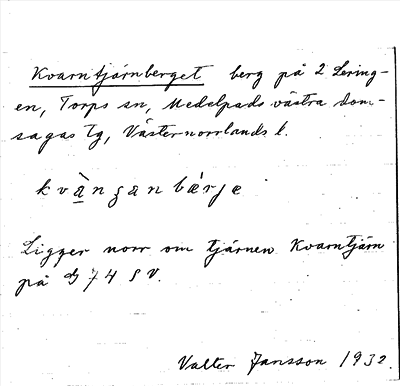 Kvarntjärnberget berg på 2 Lering-
en, Torps sn, Medelpads västra dom-
sagas tg, Västernorrlands l.
kvànganbǽrje
Ligger norr om tjärnen Kvarntjärn
på 74 SV.
Valter Jansson 1932.